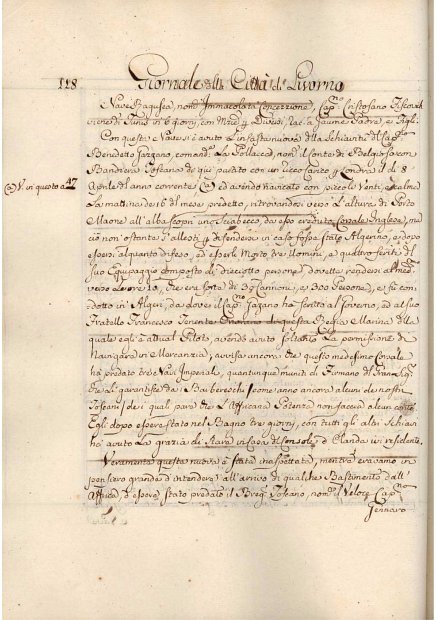 118 Giornale della Città di Livorno
Nave Ragusea nom.ta Immacolata Concezzione, Cap.no Cristofano
viene di Tunis in 6 giorni, con Merci, e Jaume Padre, e Figli.
Con questa Nave si è avuto l'infasta nuova della Schiavitù del Cap.no
Benedetto Gazzano, comand.te la Pollacca, nom.ta il Conte di Belgioj con
Bandiera Toscana di qui partito con ricco carico p Londra il dì 8
(a) V. in questo a 27
Aprile del anno corrente (a) ed avendo navicato con piccoli Venti, e calme
La mattina de 16 del mese predetto, ritrovandosi verso l'altura di Porto
Maone all'alba scoprì uno Sciabecco, da esso creduto Corsale Inglese, ma
ciò non ostante s'allestì p difendersi in caso fosse stato Algerino, e dopo
essersi alquanto difeso, ed esserli Morto tre Uomini, e quattro feriti del
suo Equipaggio composto di diciotto persone, dovette rendersi al med.mo
verso l'ore 10, che era forte di 30 Cannoni, e 300 Persone, e fù con
dotto in Algeri, da dove il Cap.no Gazano ha scritto al Governo, ed al suo
Fratello Francesco Tenente di questa Regia Marina della
quale egli è attual Piloto, avendo avuto soltanto la permissione di
Navigare in Mercanzia, avvisa ancora che questo medesimo Corsale
ha predato tre Navi Imperiali, quantunque muniti di Firmano del Gran Sig.re
che li garantisce da Barbereschi / come anno ancora alcuni de nostri
Toscani / de i quali pare che l'Affricana Potenza non faccia alcun conto
Egli dopo essere stato nel Bagno tre giorni, con tutti gli altri Schiavi
hà avuto la grazia di stare in Casa del Console d'Olanda ivi residente.
Veramente questa nuova è stata inaspettata, mentre eravamo in
pensiero grande d'intendere all'arrivo di qualche Bastimento dall'
Affrica d'essere stato predato il Brig.no Toscano, nom.to il Veloce Cap.no
Gennaro